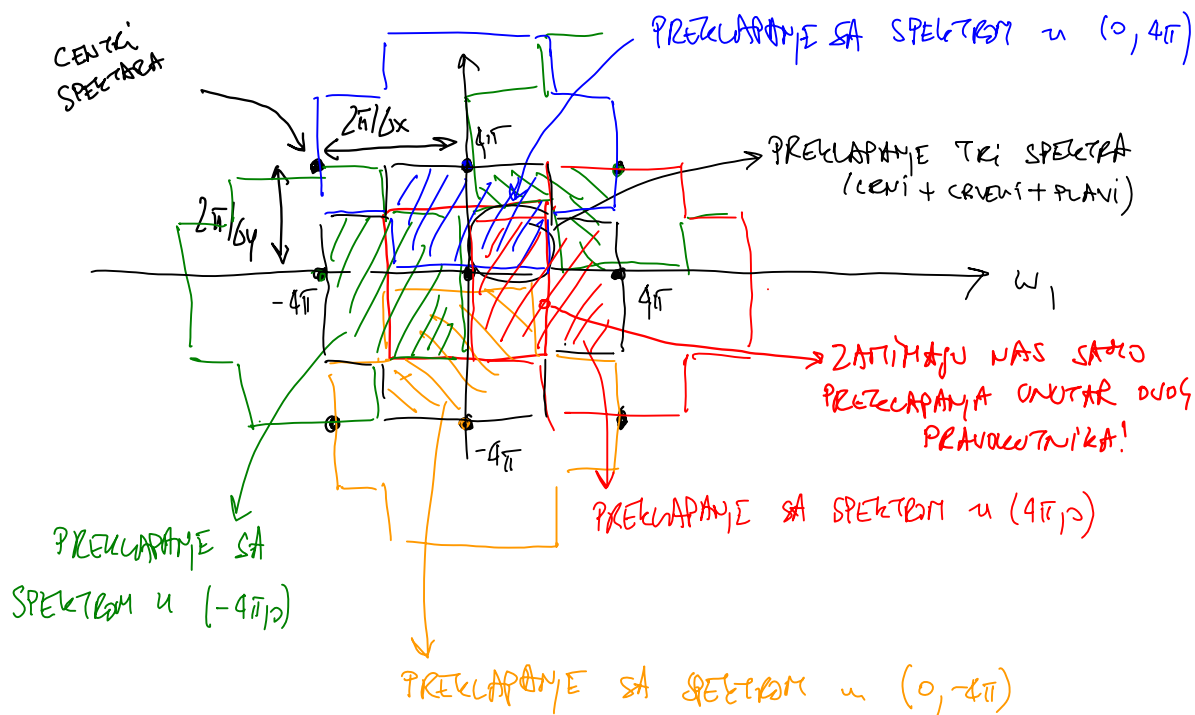 PREKLAPANJE SA SPEKTROM u (0, 4π)
CENTRI
SPEKTARA
2π/Δx
4π
PREKLAPANJE TRI SPEKTRA
(CRNI + CRVENI + PLAVI)
2π/Δy
-4π
4π
ω₁
ZANIMAJU NAS SAMO
PREKLAPANJA UNUTAR OVOG
PRAVOKUTNIKA!
-4π
PREKLAPANJE SA SPEKTROM u (4π,0)
PREKLAPANJE SA
SPEKTROM u (-4π,0)
PREKLAPANJE SA SPEKTROM u (0,-4π)